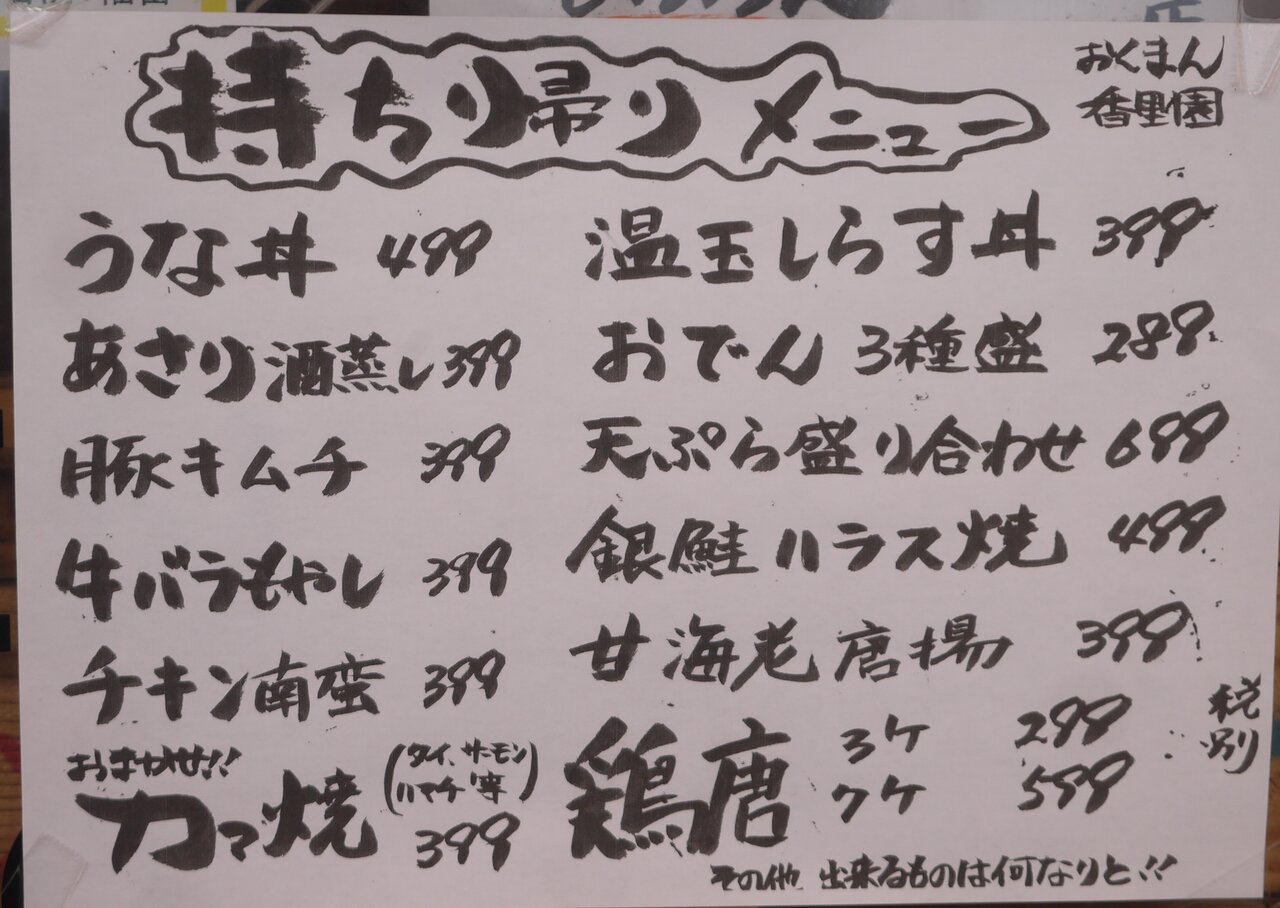 持ち帰りメニュー
おくまん
香里園
うな丼 499
あさり酒蒸し 399
豚キムチ 399
牛バラもやし 399
チキン南蛮 399
おまかせ!!
カマ焼 (タイ、サーモン ハマチ等) 399
温玉しらす丼 399
おでん3種盛 288
天ぷら盛り合わせ 688
銀鮭ハラス焼 488
甘海老唐揚 399
鶏唐 3ケ 299
7ケ 599
税別
その他 出来るものは何なりと!!